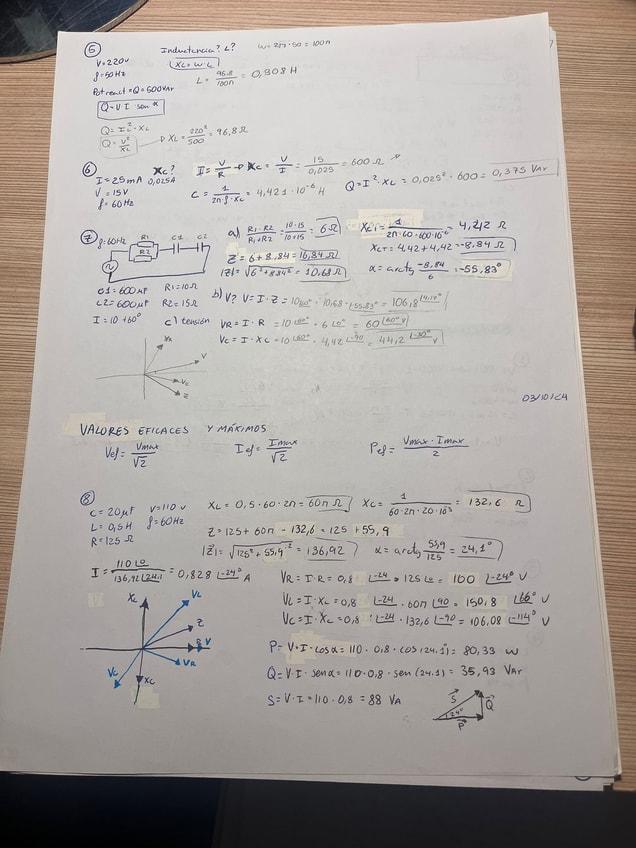 5
Inductancia? L?
w = 2π·50 = 100π
V = 220v
f = 50Hz
XL = w·L
L = 96.8/100π = 0,308 H
Pot react = Q = 500VAr
Q = V·I·sen α
Q = IL²·XL
Q = V²/XL → XL = 220²/500 = 96,8 Ω
6
Xc?
I = 25mA 0,025A
V = 15V
f = 60Hz
I = V/R → Xc = V/I = 15/0,025 = 600 Ω
C = 1/2π·f·Xc = 4,421·10⁻⁶ H
Q = I²·XL = 0,025²·600 = 0,375 VAr
7
f: 60Hz
R1
R2
C1
C2
C1 = 600μF R1 = 10Ω
C2 = 600μF R2 = 15Ω
I = 10 +60° c) tensión
a) R1·R2/R1+R2 = 10·15/10+15 = 6Ω
XC1 = 1/2π·60·600·10⁻⁶ = 4,42 Ω
XCT = 4,42+4,42 = -8,84 Ω
Z = 6+8,84 = 16,84 Ω
|Z| = √6²+8,84² = 10,68 Ω
α = arctg -8,84/6 = -55,83°
b) V? V = I·Z = 10∟60°·10,68∟-55.83° = 106,8∟4,17°
VR = I·R = 10∟60°·6∟0° = 60∟60° V
VC = I·XC = 10∟60°·4,42∟-90 = 44,2∟-30° V
VR
V
VC
Z
03/10/24
VALORES EFICACES Y MÁXIMOS
Vef = Vmax/√2
Ief = Imax/√2
Pef = Vmax·Imax/2
8
C = 20μF V = 110 v
L = 0,5H f = 60Hz
R = 125 Ω
XL = 0,5·60·2π = 60π Ω
XC = 1/60·2π·20·10⁻⁶ = 132,6 Ω
Z = 125 + 60π - 132,6 = 125 + 55,9
|Z| = √125² + 55,9² = 136,92
α = arctg 55,9/125 = 24,1°
I = 110∟0/136,92∟24.1 = 0,828∟-24° A
VR = I·R = 0,8∟-24·125∟0 = 100∟-24° V
VL = I·XL = 0,8∟-24·60π∟90 = 150,8∟66° V
VC = I·XC = 0,8∟-24·132,6∟-90 = 106,08∟-114° V
P = V·I·cos α = 110·0.8·cos (24.1°) = 80,33 W
Q = V·I·sen α = 110·0.8·sen (24.1) = 35,93 VAr
S = V·I = 110·0.8 = 88 VA
XL
VL
Z
R
V
VR
VC
XC
S
Q
24°
P